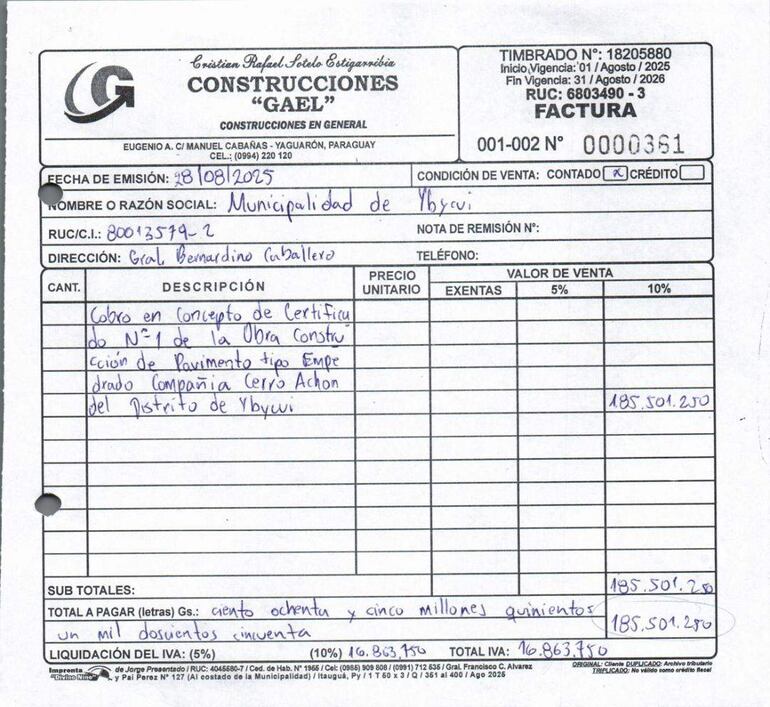 Cristian Rafael Sotelo Estigarribia
CONSTRUCCIONES
"GAEL"
CONSTRUCCIONES EN GENERAL
EUGENIO A. C/ MANUEL CABAÑAS - YAGUARÓN, PARAGUAY
CEL.: (0994) 220 120
TIMBRADO N°: 18205880
Inicio Vigencia: 01 / Agosto / 2025
Fin Vigencia: 31 / Agosto / 2026
RUC: 6803490 - 3
FACTURA
001-002 N° 0000361
FECHA DE EMISIÓN: 28/08/2025 CONDICIÓN DE VENTA: CONTADO x CRÉDITO
NOMBRE O RAZÓN SOCIAL: Municipalidad de Ybycui
RUC/C.I.: 80013579-2 NOTA DE REMISIÓN N°:
DIRECCIÓN: Gral Bernardino Caballero TELÉFONO:
CANT. DESCRIPCIÓN PRECIO UNITARIO VALOR DE VENTA
EXENTAS 5% 10%
Cobro en Concepto de Certifica
do N°1 de la Obra Constru
cción de Pavimento tipo Empe
drado Compañia Cerro Achon
del Distrito de Ybycui 185.501.250
SUB TOTALES: 185.501.250
TOTAL A PAGAR (letras) Gs.: ciento ochenta y cinco millones quinientos
un mil dosuentos cincuenta 185.501.250
LIQUIDACIÓN DEL IVA: (5%) (10%) 16.863.750 TOTAL IVA: 16.863.750
Imprenta "Divino Niño" de Jorge Presentado / RUC: 4045580-7 / Ced. de Hab. N° 1965 / Cel: (0985) 909 808 / (0991) 712 535 / Gral. Francisco C. Alvarez
y Pai Perez N° 127 (Al costado de la Municipalidad) / Itauguá, Py / 1 T 50 x 3 / Q / 351 al 400 / Ago 2025
ORIGINAL: Cliente DUPLICADO: Archivo tributario
TRIPLICADO: No válido como crédito fiscal